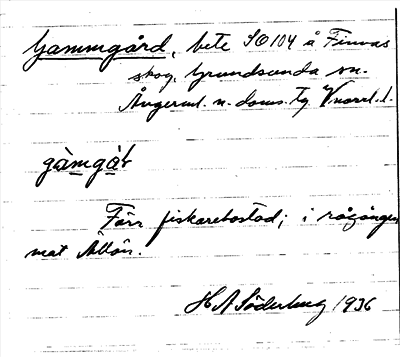 Gammgård, bete SO 104 å Finnas
skog, Grundsunda sn.
Ångerml. n. doms. tg. V nord. l.
gàmgàḷ
Förr fiskarebostad; i rågången
mot Älbön.
H A Söderberg 1936